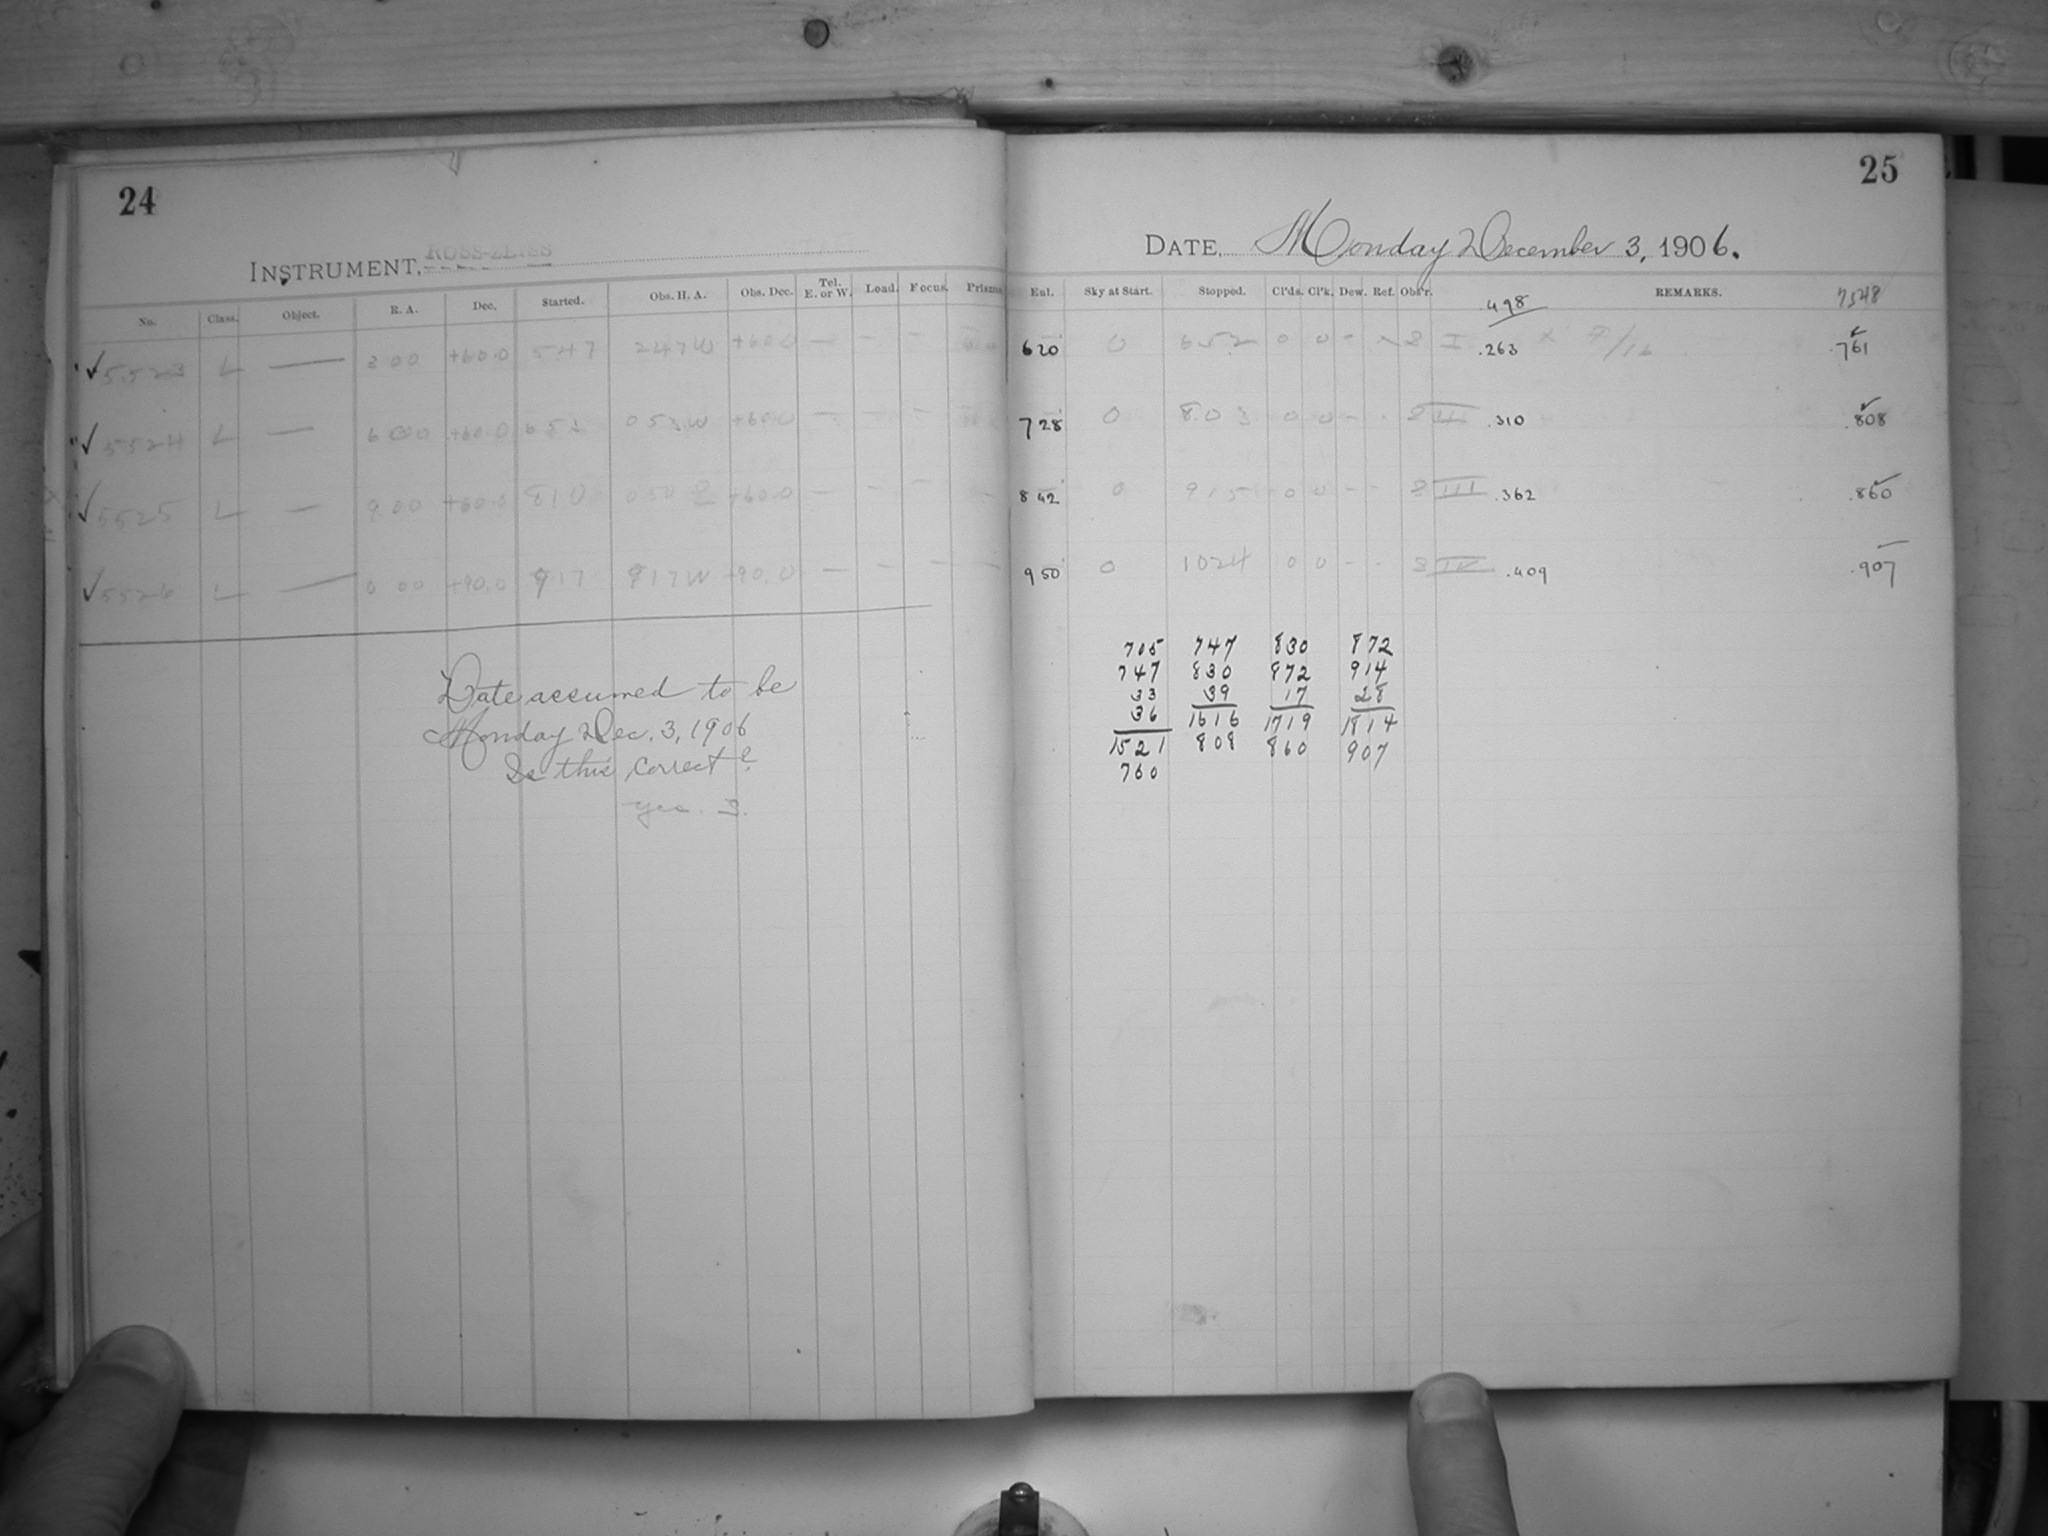 24
INSTRUMENT, ROSS-ZEISS
No. Class. Object. R. A. Dec. Started. Obs. H. A. Obs. Dec. Tel. E. or W. Load. Focus. Prisms
✓5523 L — 3 00 +60.0 5 47 2 47 W +60.0 — — —
✓5524 L — 6 00 +60.0 6 53 0 53 W +60.0 — — —
✓5525 L — 9 00 +60.0 8 10 0 50 E +60.0 — — —
✓5526 L — 0 00 +90.0 9 17 9 17 W +90.0 — — — —
Date assumed to be
Monday Dec. 3, 1906
Is this correct?
yes. S.
25
DATE, Monday December 3, 1906.
Enl. Sky at Start. Stopped. Cl'ds. Cl'k. Dew. Ref. Obs'r. .498 REMARKS. 7548
6 20 0 6 52 0 0 - S I .263 × F/16 .761
7 28 0 8 03 0 0 - - S II .310 .808
8 42 0 9 15 0 0 - - S III .362 .860
9 50 0 10 24 0 0 - - S IV .409 .907
705 747 830 872
747 830 872 914
33 39 17 28
36 1616 1719 1814
1521 808 860 907
760